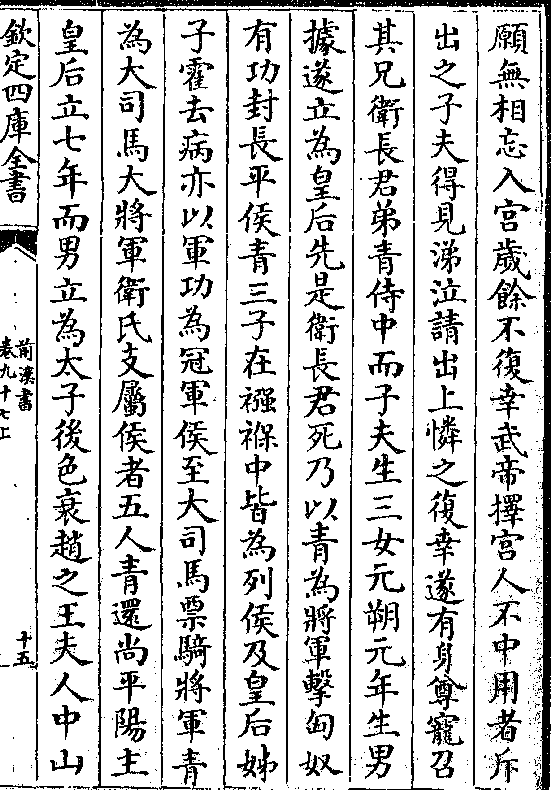 願無相忘入宮歲餘不復幸武帝擇宮人不中用者斥
出之子夫得見涕泣請出上憐之復幸遂有身尊寵召
其兄衛長君弟青侍中而子夫生三女元朔元年生男
據遂立為皇后先是衛長君死乃以青為將軍擊匈奴
有功封長平侯青三子在襁褓中皆為列侯及皇后姊
子霍去病亦以軍功為冠軍侯至大司馬票騎將軍青
為大司馬大將軍衛氏支屬侯者五人青還尚平陽主
皇后立七年而男立為太子後色衰趙之王夫人中山
欽定四庫全書
前漢書
卷九十七上
十五